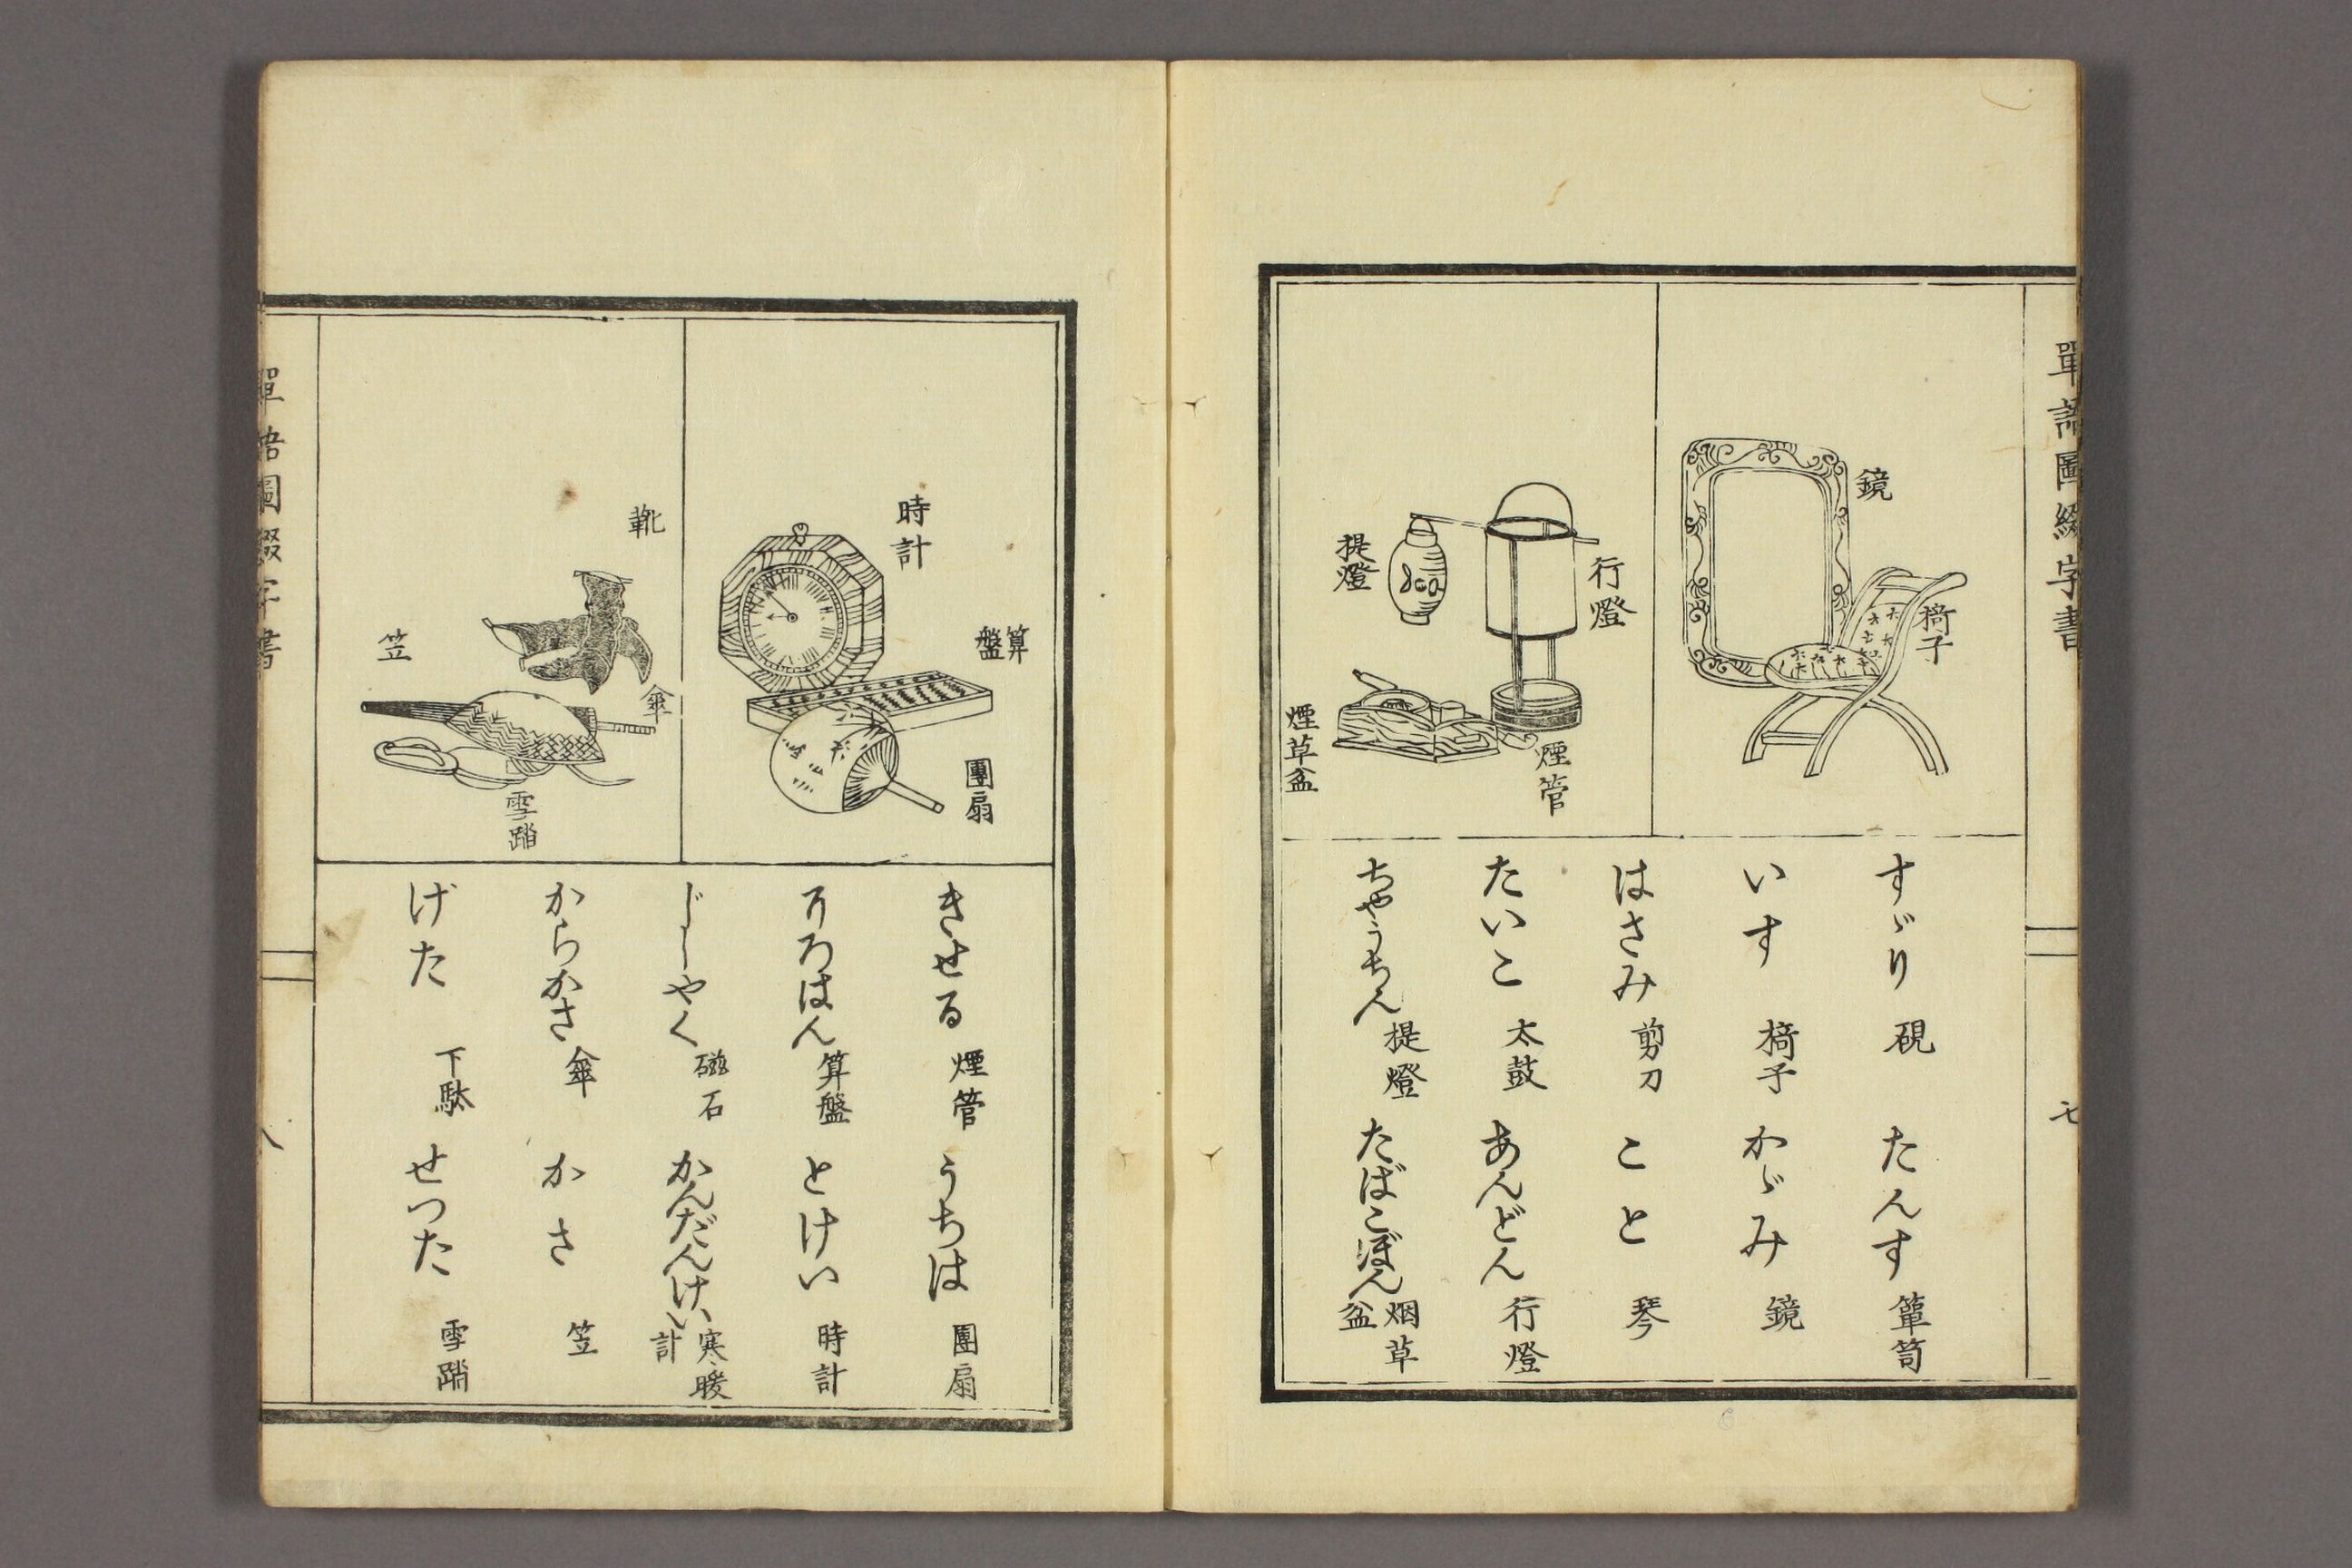 單語圖綴字書 七
鏡
椅子
行燈
提燈
煙管
煙草盆
すゞり 硯 たんす 簞笥
いす 椅子 かゞみ 鏡
はさみ 剪刀 こと 琴
たいこ 太鼓 あんどん 行燈
ちやうちん 提燈 たばこぼん 烟草盆
時計
算盤
團扇
靴
傘
笠
雪踏
きせる 煙管 うちは 團扇
そろはん 算盤 とけい 時計
じしやく 磁石 かんだんけい 寒暖計
からかさ 傘 かさ 笠
げた 下駄 せつた 雪踏
單語圖綴字書 八